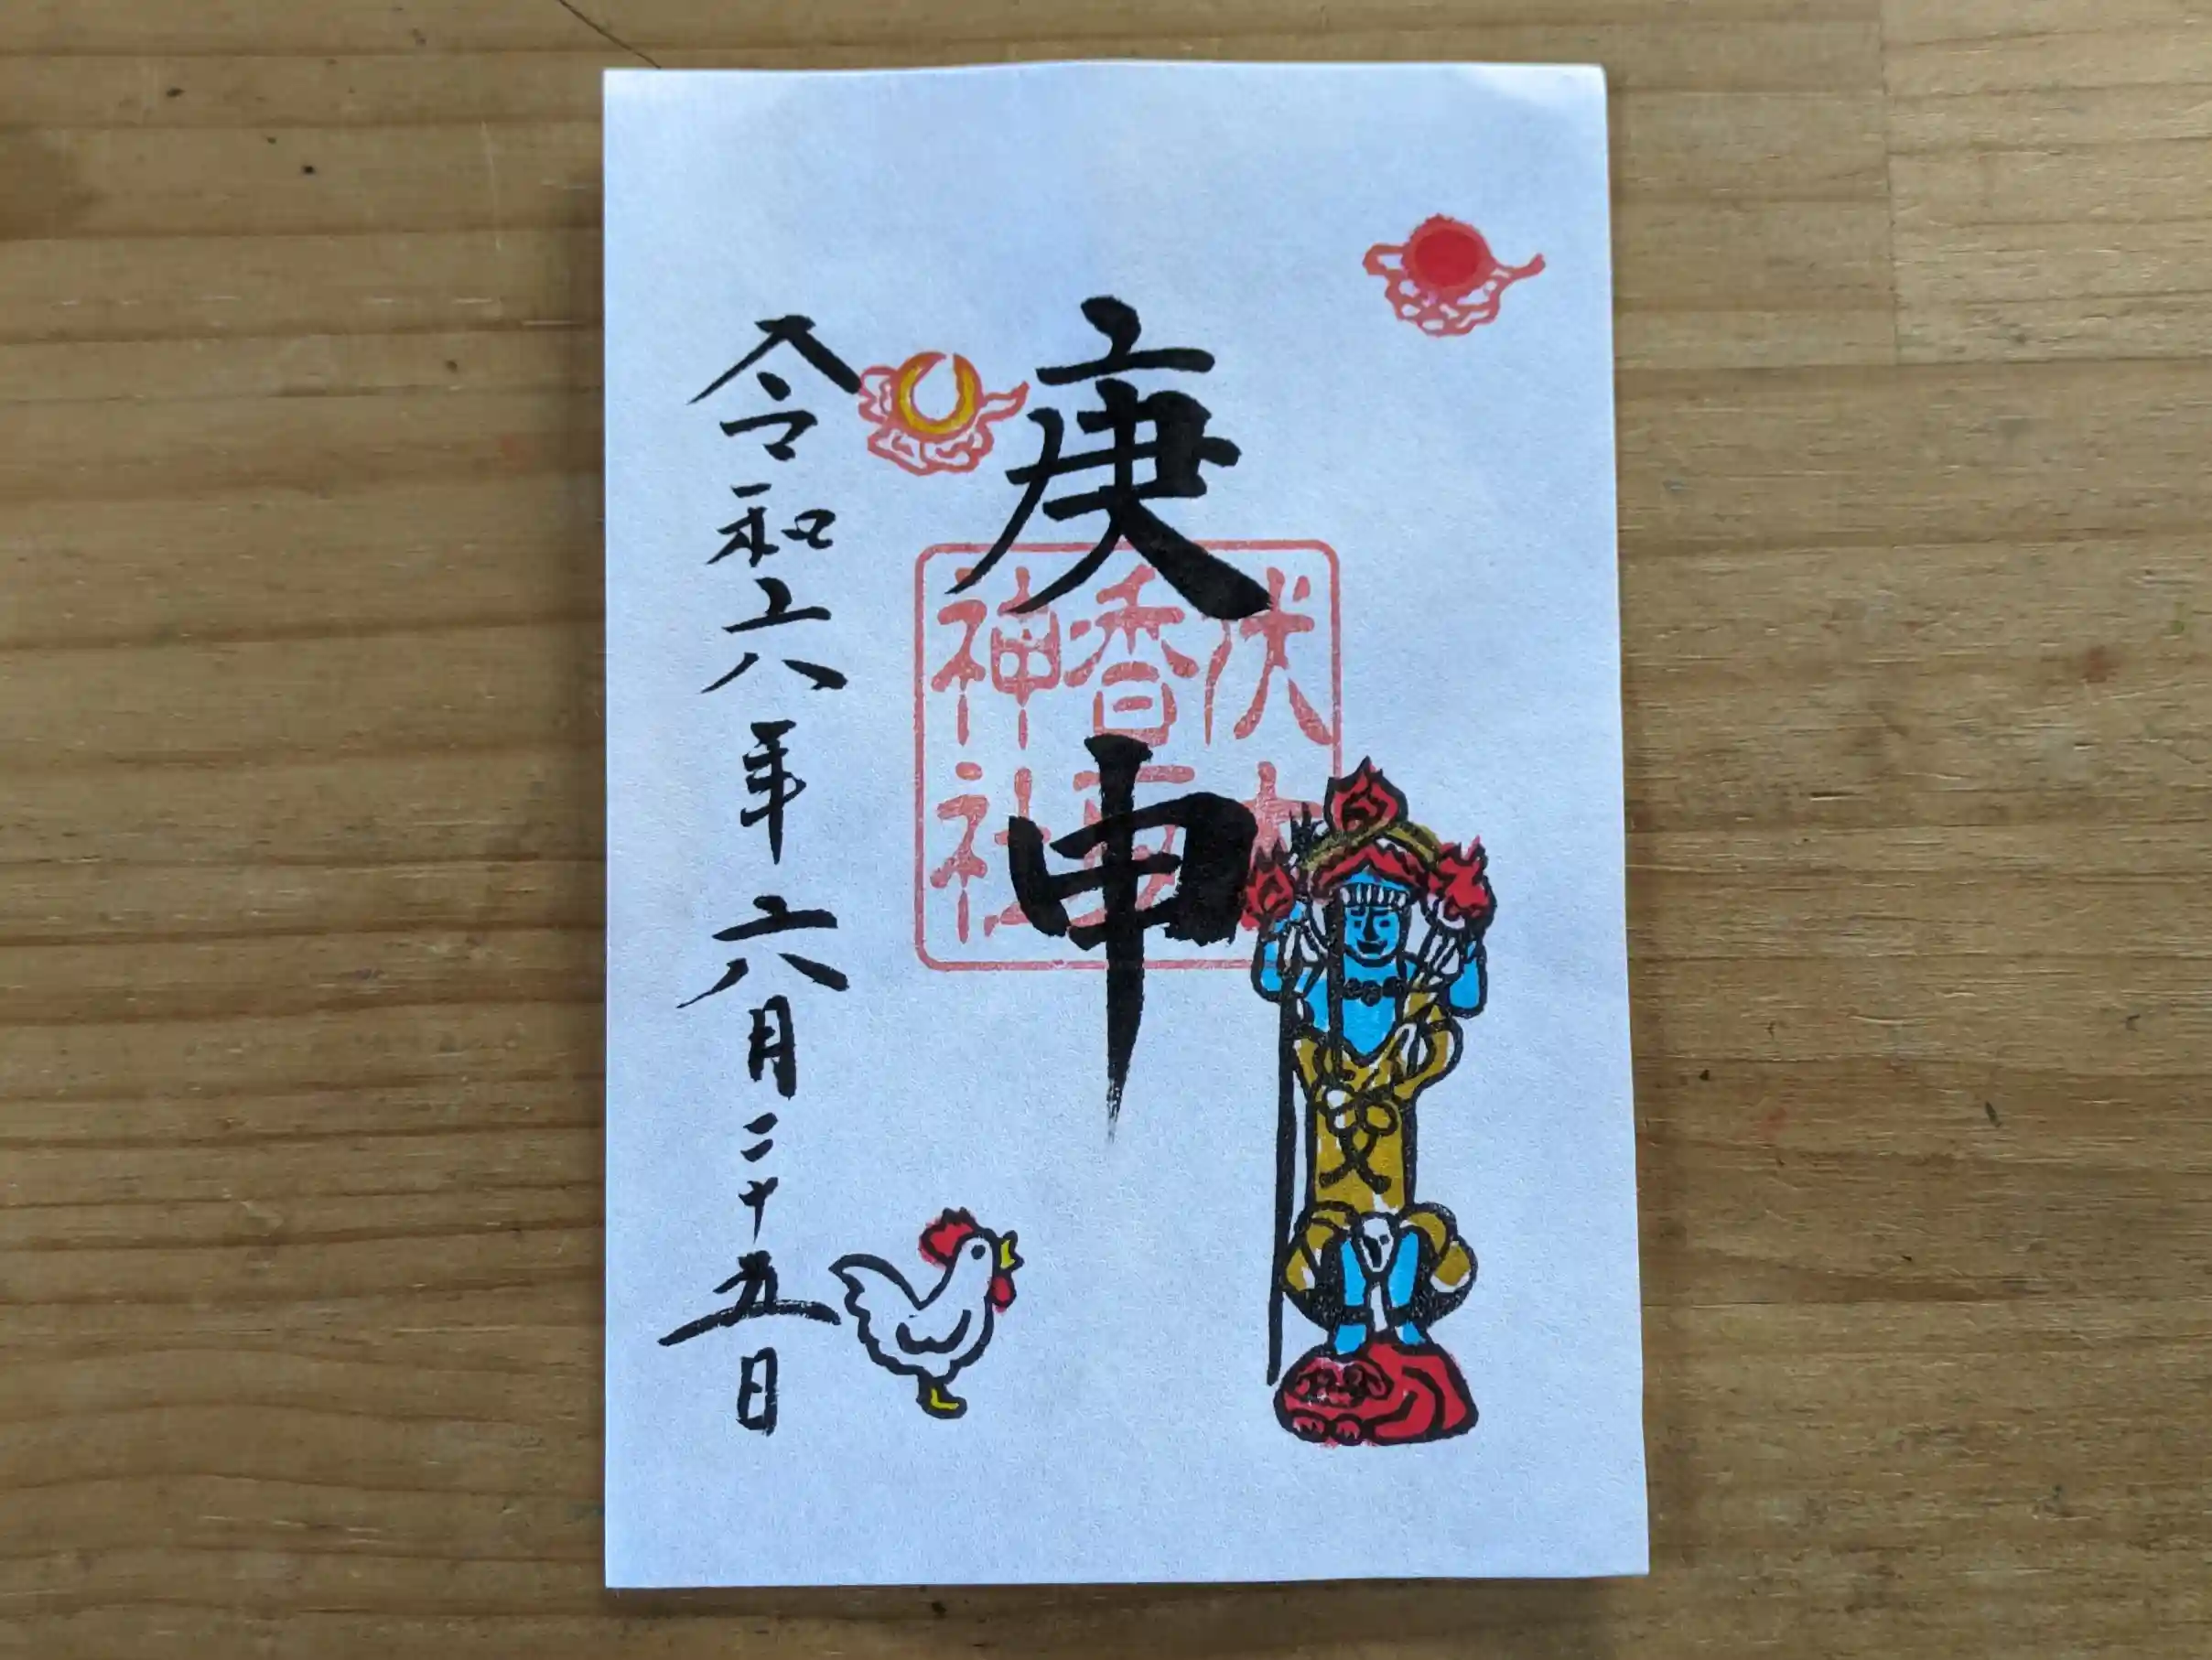 庚申
伏木
香取
神社
令和六年六月二十五日